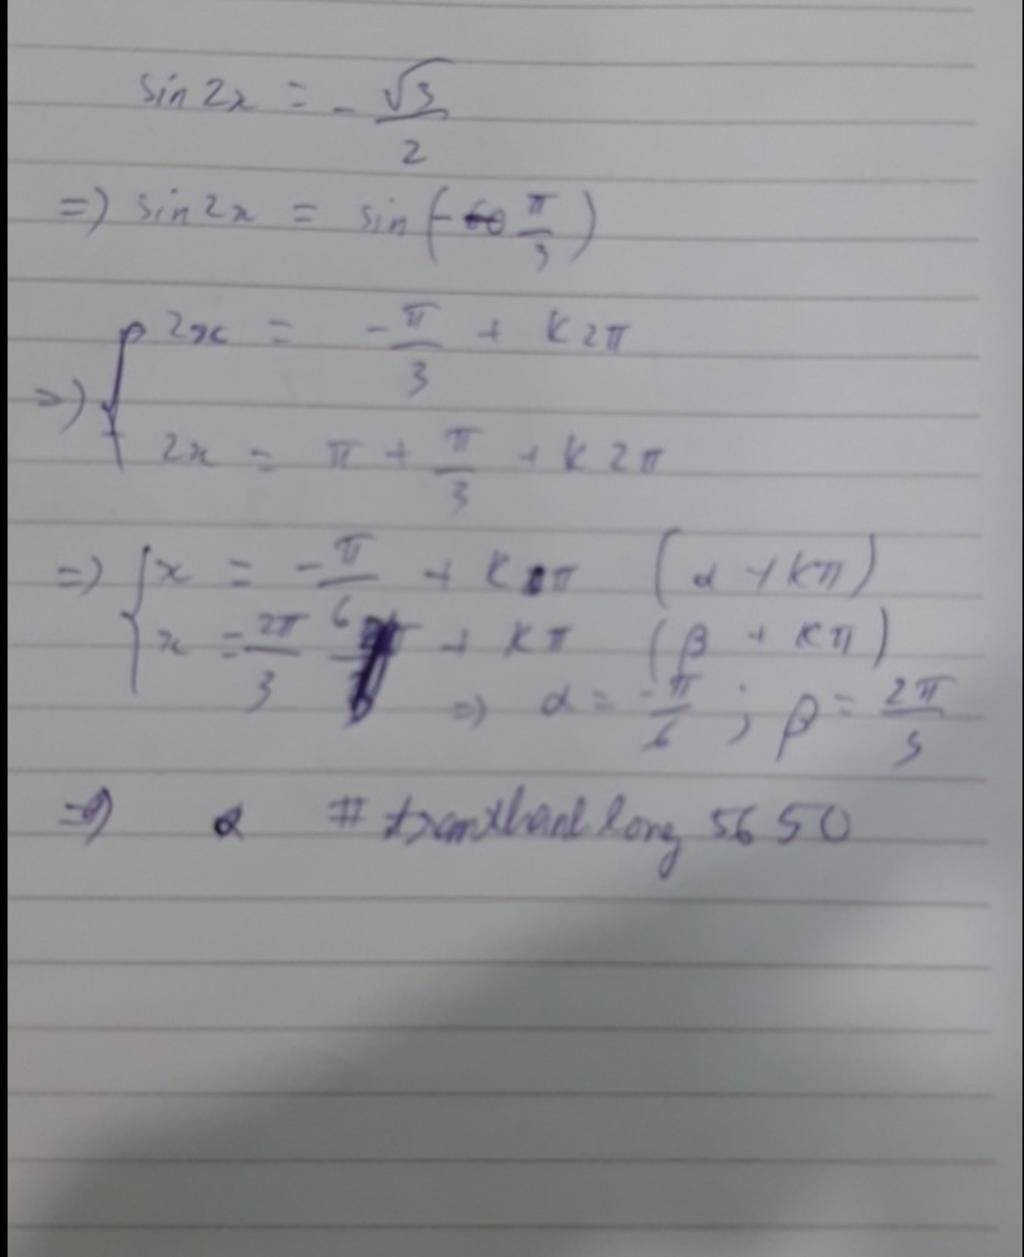 sin 2x = - √3/2
=) sin 2x = sin (- π/3)
=) { 2x = - π/3 + k2π
2x = π + π/3 + k2π
=) { x = - π/6 + kπ (α + kπ)
x = 2π/3 + kπ (β + kπ)
=) α = -π/6 ; β = 2π/3
=) α # tranthanhlong 5650